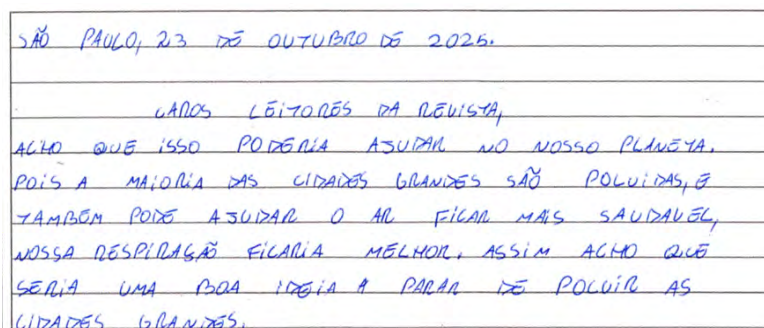 SÃO PAULO, 23 DE OUTUBRO DE 2025.
CAROS LEITORES DA REVISTA,
ACHO QUE ISSO PODERIA AJUDAR NO NOSSO PLANETA.
POIS A MAIORIA DAS CIDADES GRANDES SÃO POLUIDAS, E
TAMBÉM PODE AJUDAR O AR FICAR MAIS SAUDAVEL,
NOSSA RESPIRAÇÃO FICARIA MELHOR, ASSIM ACHO QUE
SERIA UMA BOA IDEIA A PARAR DE POLUIR AS
CIDADES GRANDES.